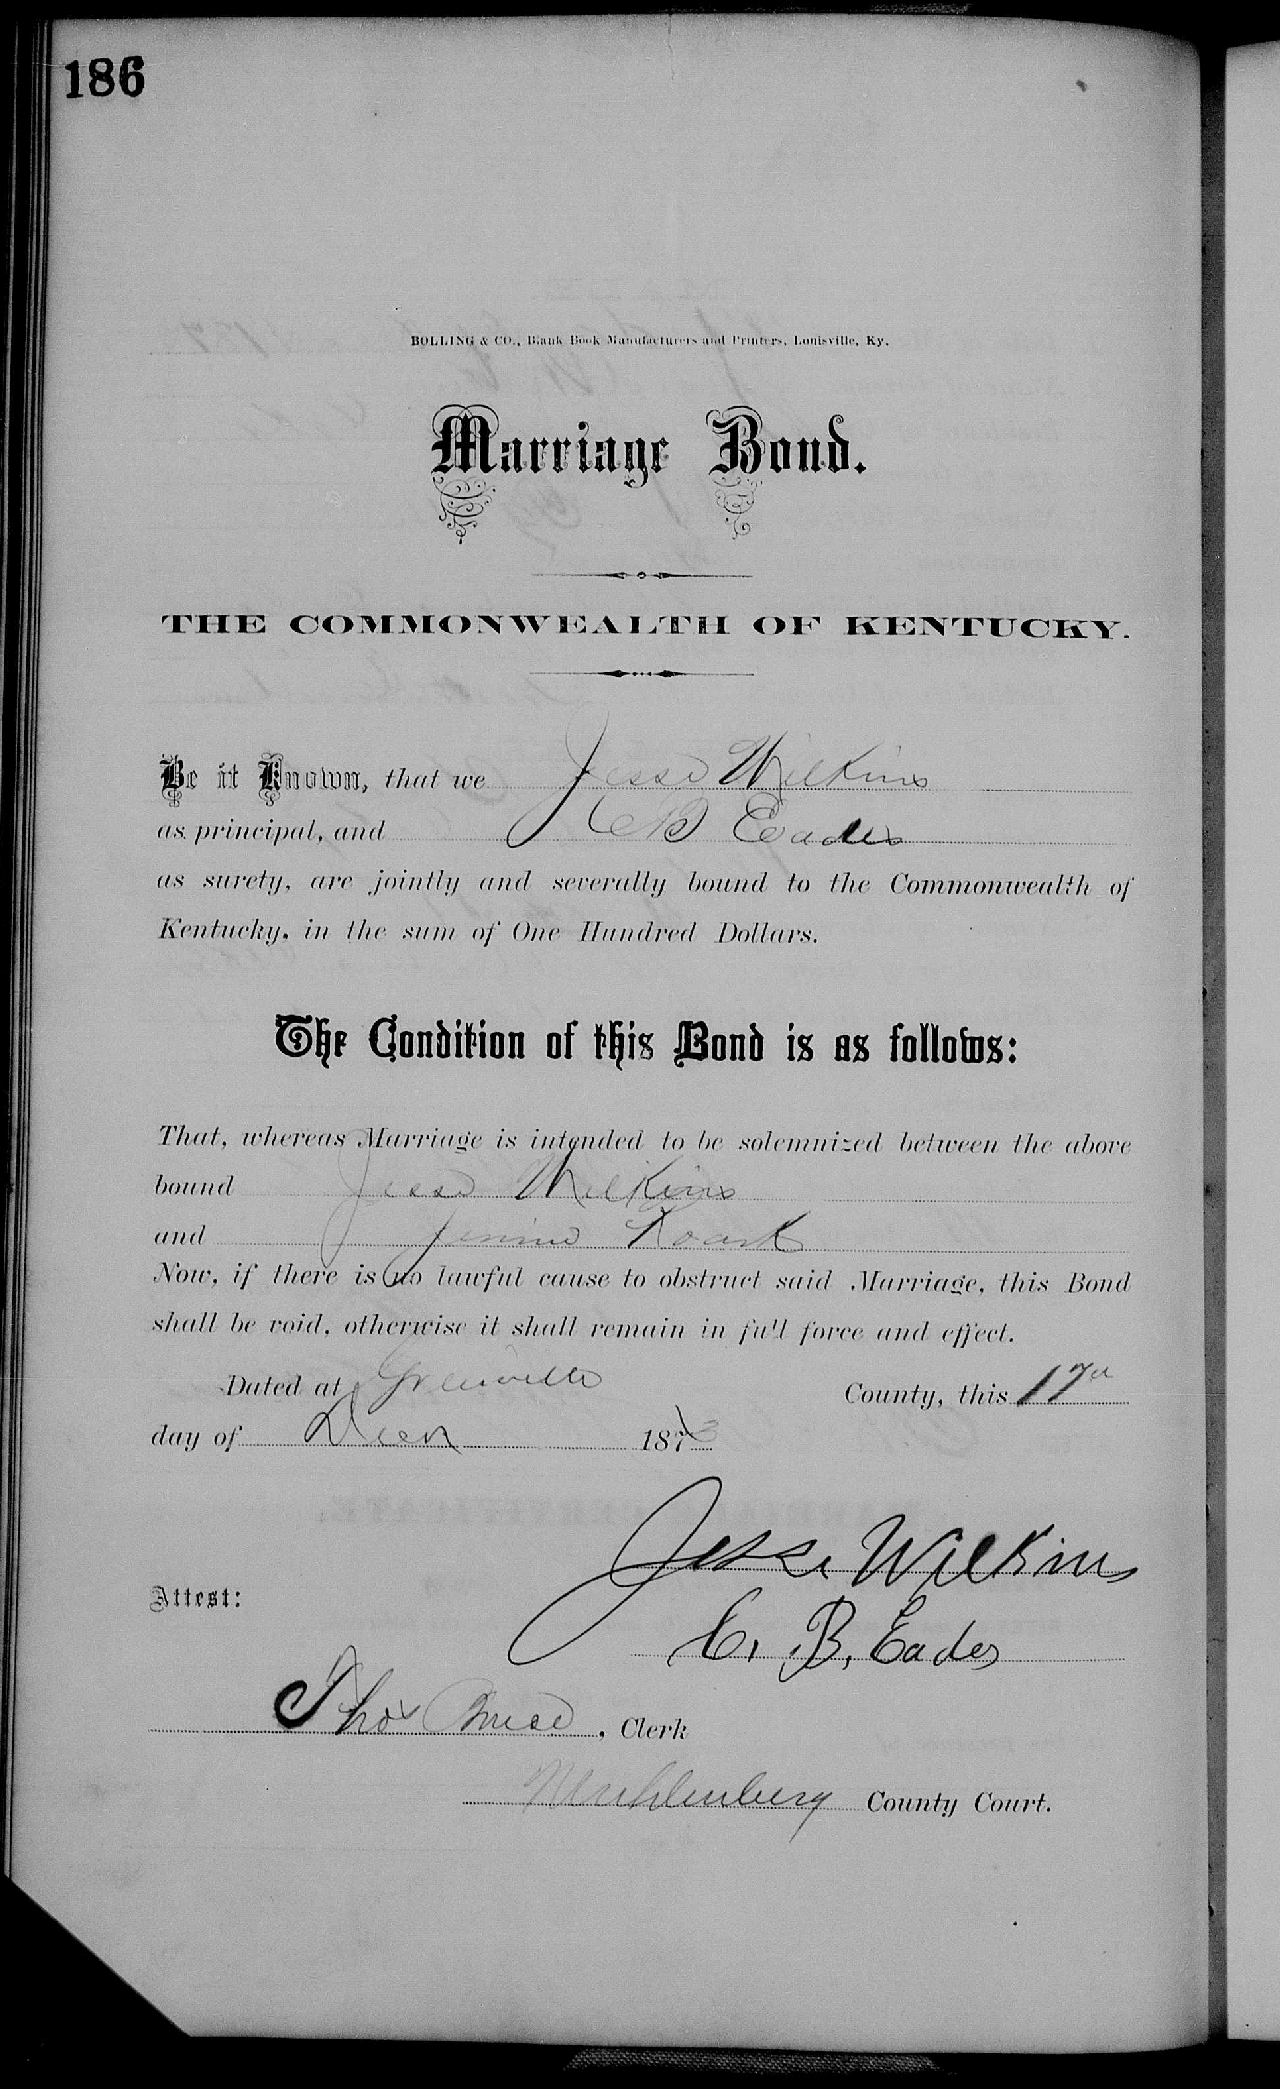 186
BOLLING & CO., Blank Book Manufacturers and Printers, Louisville, Ky.
Marriage Bond.
THE COMMONWEALTH OF KENTUCKY.
Be it Known, that we Jesse Wilkins
as principal, and C B Eades
as surety, are jointly and severally bound to the Commonwealth of
Kentucky, in the sum of One Hundred Dollars.
The Condition of this Bond is as follows:
That, whereas Marriage is intended to be solemnized between the above
bound Jesse Wilkins
and Jennie Roark
Now, if there is no lawful cause to obstruct said Marriage, this Bond
shall be void, otherwise it shall remain in full force and effect.
Dated at Greenville County, this 17th
day of Decr 187
Jesse Wilkins
Attest:
C. B. Eades
Thos Bruce, Clerk
Muhlenberg County Court.